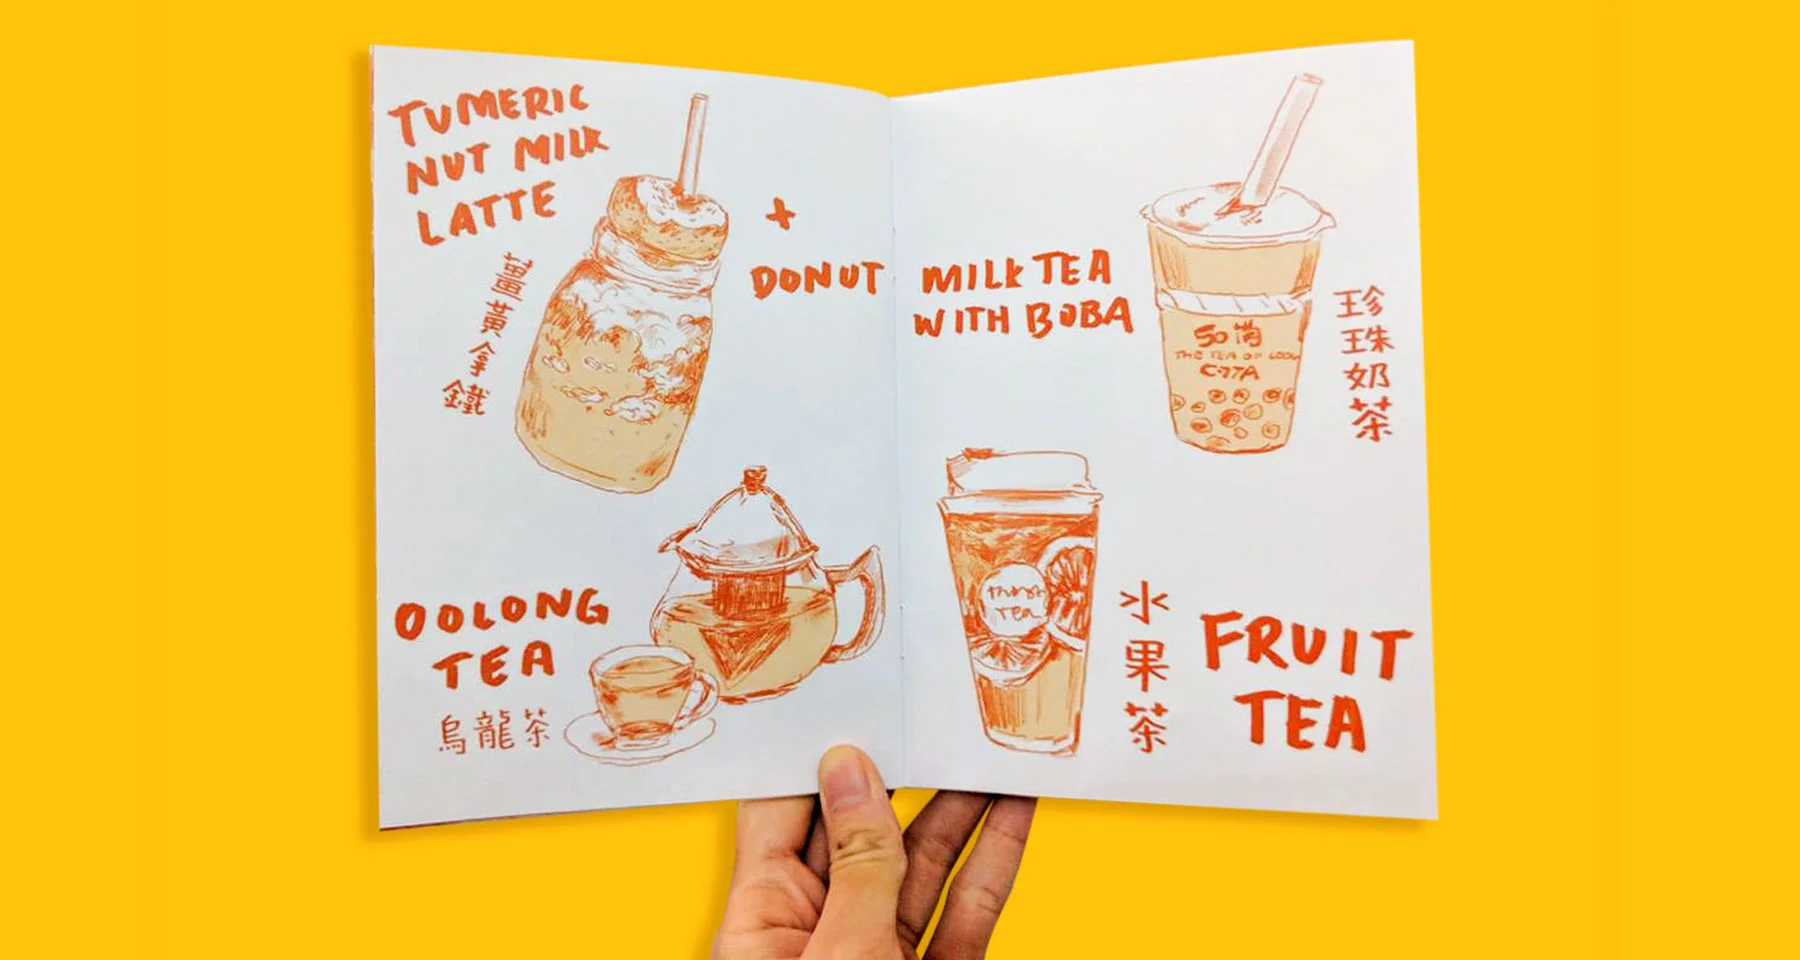 TUMERIC
NUT MILK
LATTE
薑黃拿鐵
+
DONUT
OOLONG
TEA
烏龍茶
MILK TEA
WITH BOBA
50
THE TEA OF
珍珠奶茶
TEA
水果茶
FRUIT
TEA